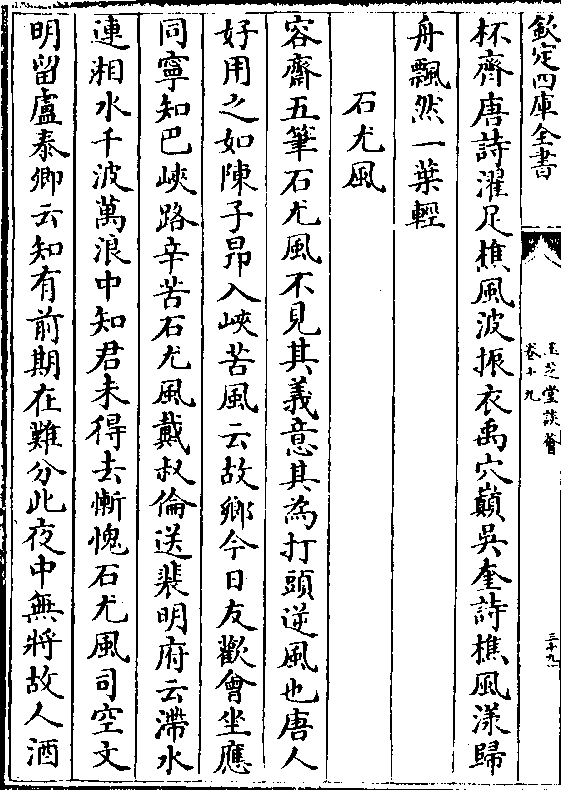 欽定四庫全書
玉芝堂談薈
卷十九
三十九
杯齊唐詩濯足樵風波振衣禹穴巔吳奎詩樵風漾歸
舟飄然一葉輕
石尤風
容齋五筆石尤風不見其義意其為打頭逆風也唐人
好用之如陳子昂入峽苦風云故鄉今日友歡會坐應
同寧知巴峽路辛苦石尤風戴叔倫送裴明府云滯水
連湘水千波萬浪中知君未得去慚愧石尤風司空文
明留盧泰卿云知有前期在難分此夜中無將故人酒